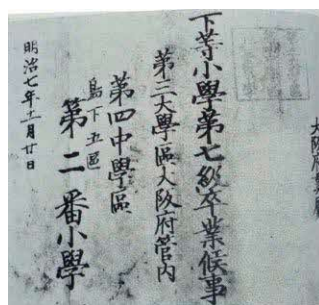 大阪府
下等小學第七級卒業候事
第三大學區大阪府管内
第四中學區
島下五區
第二番小學
明治七年十一月廿日